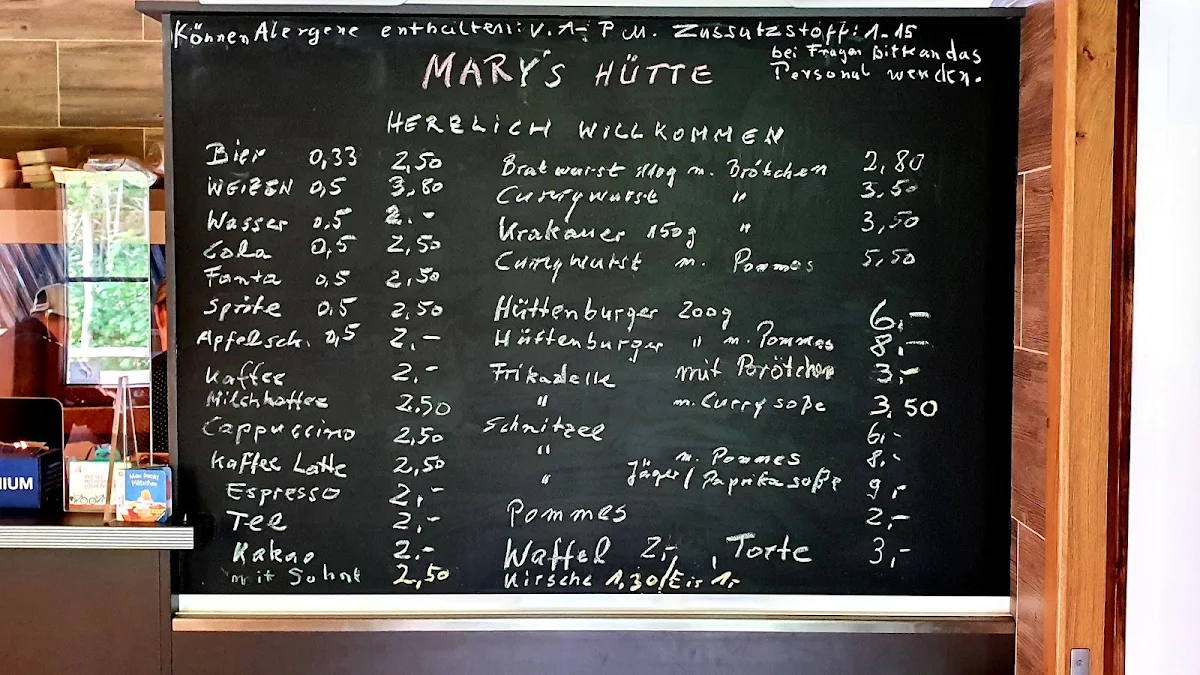 Können Alergene enthalten: v. A-P u. Zussatzstoff: 1-15
bei Fragen bitte an das
Personal wenden.
MARY'S HÜTTE
HERZLICH WILLKOMMEN
Bier 0,33 2,50
WEIZEN 0,5 3,80
Wasser 0,5 2.-
Cola 0,5 2,50
Fanta 0,5 2,50
Sprite 0,5 2,50
Apfelsch. 0,5 2,-
Kaffee 2.-
Milchkaffee 2.50
Cappuccino 2,50
Kaffee Latte 2,50
Espresso 2,-
Tee 2,-
Kakao 2.-
mit Sahne 2,50
Bratwurst 110g m. Brötchen 2,80
Currywurst " 3,50
Krakauer 150g " 3,50
Currywurst m. Pommes 5,50
Hüttenburger 200g 6,-
Hüttenburger " m. Pommes 8,-
Frikadelle mit Brötchen 3,-
" m. Curry soße 3,50
Schnitzel 6,-
" m. Pommes 8,-
" Jäger/Paprika soße 9,-
Pommes 2,-
Waffel 2,-, Torte 3,-
Kirsche 1,30/Eis 1,-
IUM